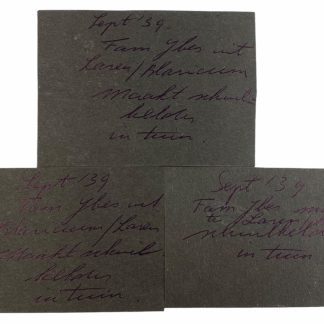 Sept '39.
Fam Ybes uit
Laren/Blaricum
maakt schuil
kelder
in tuin
Sept '39
Fam Ybes uit
Blaricum/Laren
Maakt schuil
kelder
in tuin.
Sept 39
Fam Ybes
te Laren
schuilkelder
in tuin